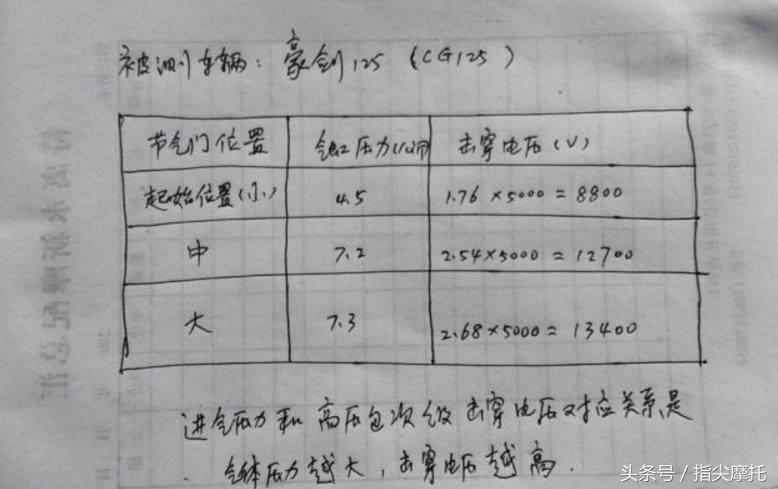 被测车辆: 豪剑125 (CG125)
节气门位置 气缸压力(公斤) 击穿电压(V)
起始位置(小) 4.5 1.76×5000=8800
中 7.2 2.54×5000=12700
大 7.3 2.68×5000=13400
进气压力和高压包次级击穿电压对应关系是
气体压力越大,击穿电压越高.
头条号/指尖摩托